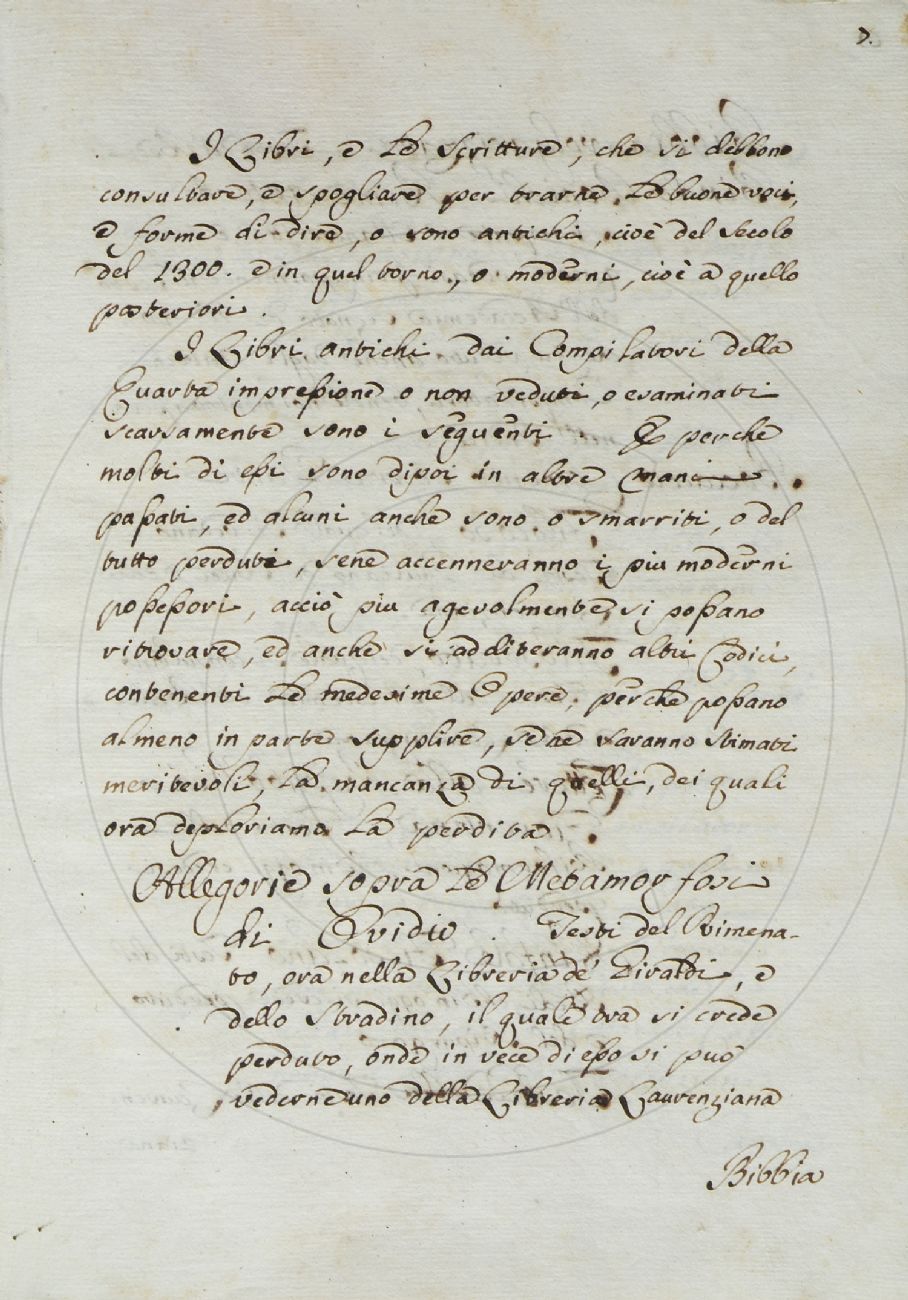 7.
I Libri, e le scritture, che si debbono
consultare, e spogliare per trarne le buone voci,
e forme di dire, o sono antichi, cioè del secolo
del 1300. e in quel torno, o moderni, cioè a quello
posteriori.
I Libri antichi dai Compilatori della
Quarta impressione o non veduti, o esaminati
scarsamente sono i seguenti. E perchè
molti di essi sono dipoi in altre mani
passati, ed alcuni anche sono o smarriti, o del
tutto perduti, sene accenneranno i più moderni
possessori, acciò più agevolmente si possano
ritrovare, ed anche si additeranno altri Codici,
contenenti le medesime Opere, perchè possano
almeno in parte supplire, se ne saranno stimati
meritevoli, la mancanza di quelli, dei quali
ora deploriamo la perdita.
Allegorie sopra le Metamorfosi
di Ovidio. Testi del Rimena-
to, ora nella Libreria de' Giraldi, e
dello Stradino, il quale ora si crede
perduto, onde in vece di esso si può
vederne uno della Libreria Laurenziana
Bibbia